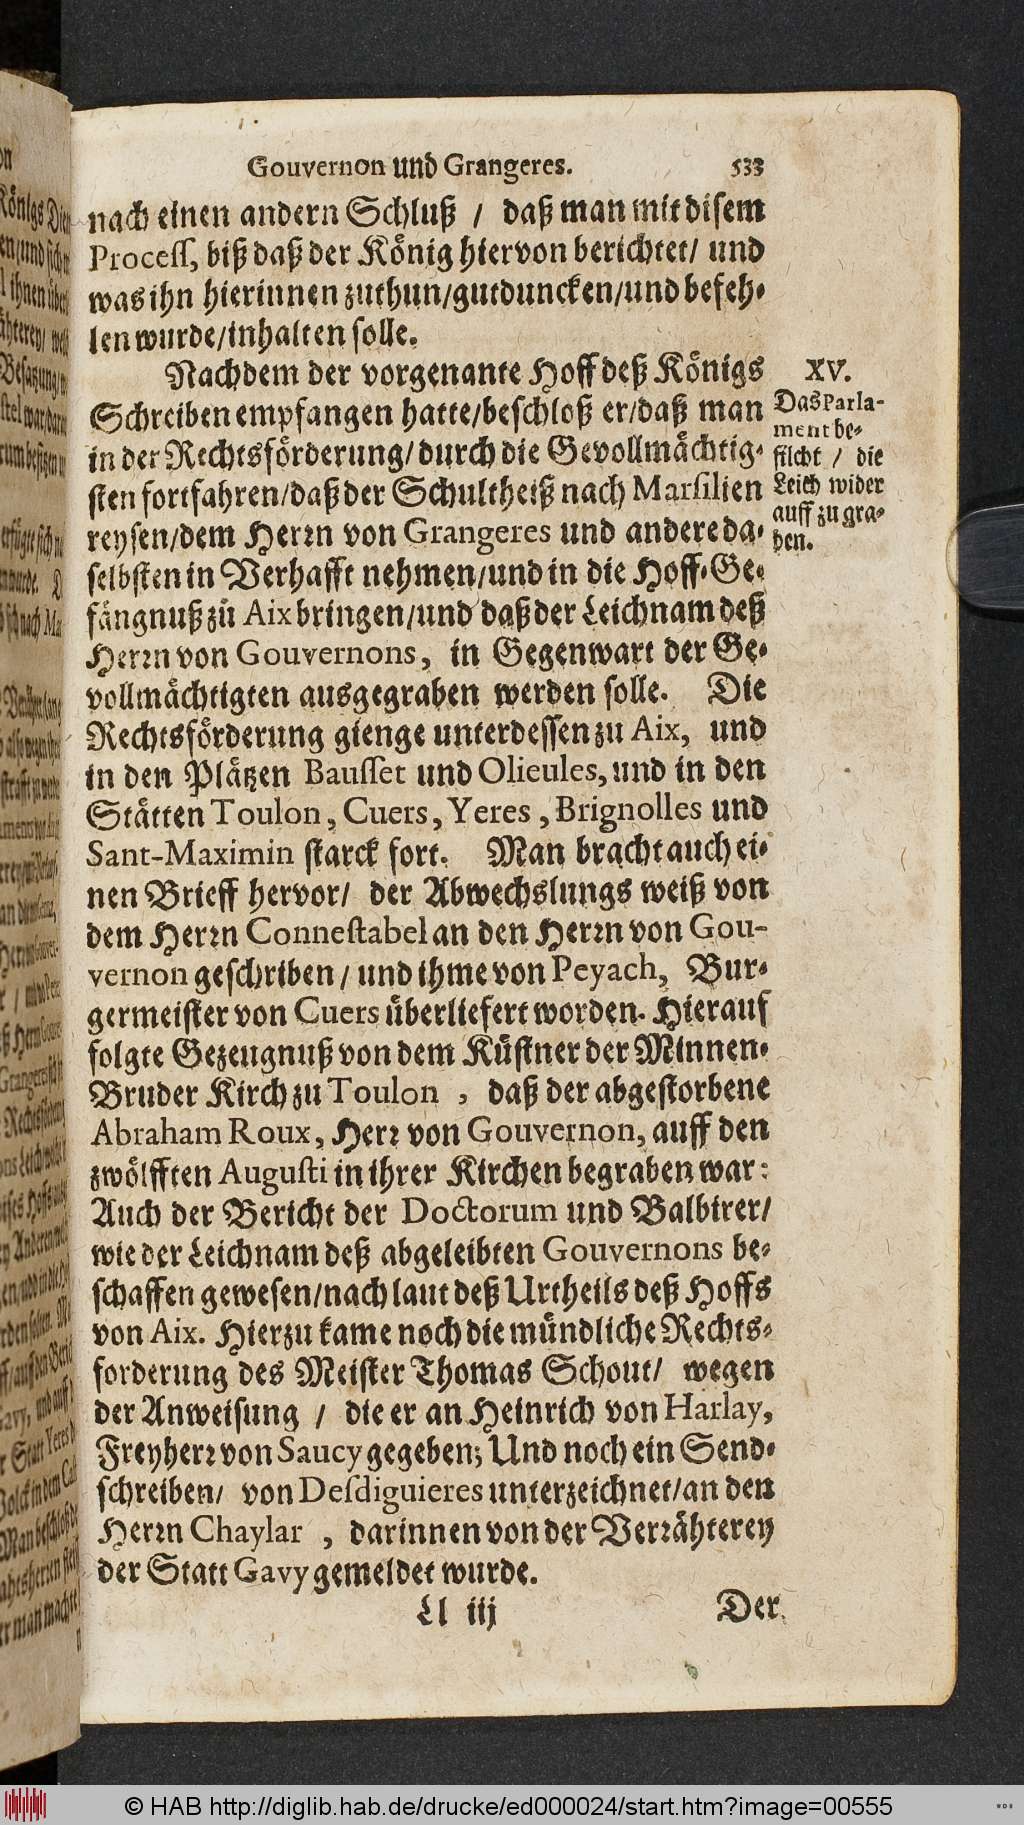 Gouvernon und Grangeres. 533
nach einen andern Schluß / daß man mit disem
Process, biß daß der König hiervon berichtet/ und
was ihn hierinnen zuthun/gutduncken/und befeh-
len wurde/inhalten solle.
Nachdem der vorgenante Hoff deß Königs
Schreiben empfangen hatte/beschloß er/daß man
in der Rechtsförderung/durch die Gevollmächtig-
sten fortfahren/daß der Schultheiß nach Marsilien
reysen/dem Herrn von Grangeres und andere da-
selbsten in Verhafft nehmen/und in die Hoff-Ge-
fängnuß zů Aix bringen/und daß der Leichnam deß
Herrn von Gouvernons, in Gegenwart der Ge-
vollmächtigten ausgegraben werden solle. Die
Rechtsförderung gienge unterdessen zu Aix, und
in den Plätzen Bausset und Olieules, und in den
Stätten Toulon, Cuers, Yeres, Brignolles und
Sant-Maximin starck fort. Man bracht auch ei-
nen Brieff hervor/ der Abwechslungs weiß von
dem Herrn Connestabel an den Herrn von Gou-
vernon geschriben / und ihme von Peyach, Bur-
germeister von Cuers überliefert worden. Hierauf
folgte Gezeugnuß von dem Küstner der Minnen-
Bruder Kirch zu Toulon, daß der abgestorbene
Abraham Roux, Herr von Gouvernon, auff den
zwölfften Augusti in ihrer Kirchen begraben war:
Auch der Bericht der Doctorum und Balbirer/
wie der Leichnam deß abgeleibten Gouvernons be-
schaffen gewesen/nach laut deß Urtheils deß Hoffs
von Aix. Hierzu kame noch die mündliche Rechts-
forderung des Meister Thomas Schout/ wegen
der Anweisung / die er an Heinrich von Harlay,
Freyherr von Saucy gegeben; Und noch ein Send-
schreiben/ von Desdiguieres unterzeichnet/an den
Herrn Chaylar, darinnen von der Verrähterey
der Statt Gavy gemeldet wurde.
Ll iij Der
XV.
Das Parla-
ment be-
filcht / die
Leich wider
auff zu gra-
ben.
© HAB http://diglib.hab.de/drucke/ed000024/start.htm?image=00555